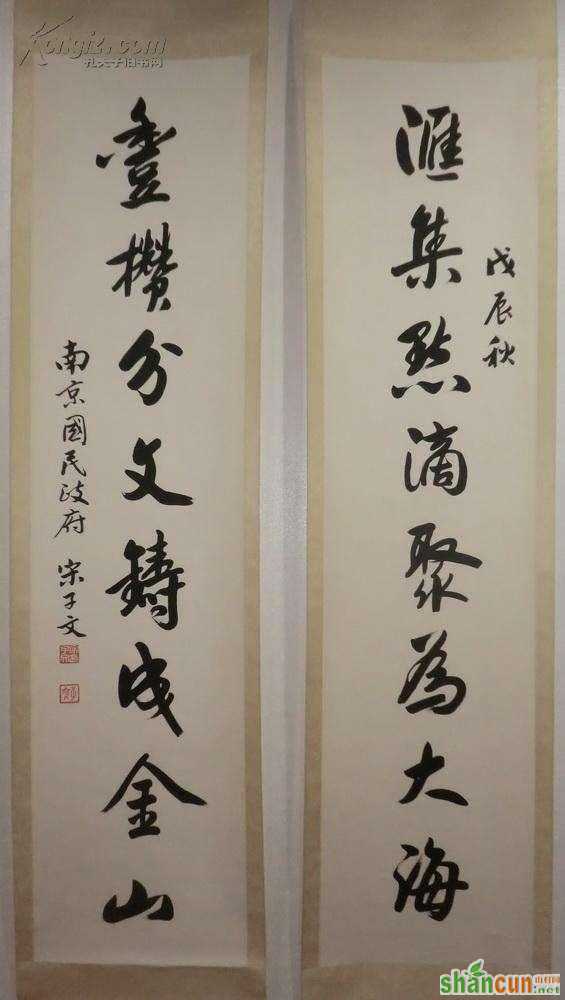 滙集點滴聚為大海
戊辰秋
攢分文鑄成金山
南京國民政府 宋子文
Kongfz.com
孔夫子旧书网
shancun
山村网
.net